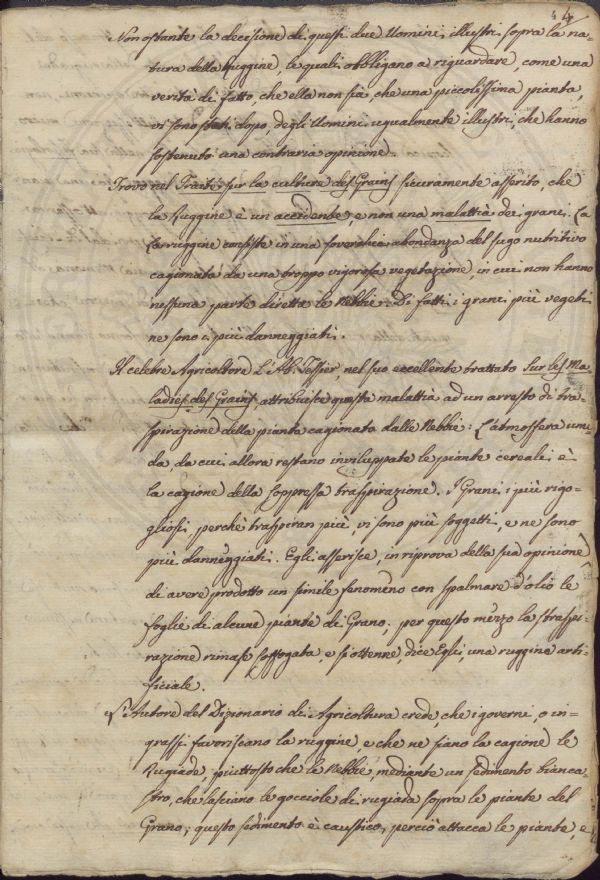 44
Non ostante la decisione di questi due Uomini illustri sopra la na-
tura della Ruggine, le quali obbligano a riguardare, come una
verità di fatto, che ella non sia, che una piccolissima pianta,
vi sono stati dopo, degli Uomini ugualmente illustri, che hanno
sostenuto una contraria opinione.
Trovo nel Traité sur la culture des Grains sicuramente asserito, che
la Ruggine è un accidente, e non una malattia dei grani. La
Ruggine consiste in una soverchia abondanza del sugo nutritivo
cagionata da una troppo vigorosa vegetazione, in cui non hanno
nessuna parte diretta le Nebbie. Di fatti i grani più vegeti
ne sono i più danneggiati.
Il celebre Agricoltore L'Ab. Tessier, nel suo eccellente trattato Sur les Ma-
ladies des Grains, attribuisce questa malattia ad un arresto di tra-
spirazione della pianta cagionata dalle Nebbie: L'atmosfera umi-
da da cui allora restano inviluppate le piante cereali è
la cagione della soppressa traspirazione. I Grani i più rigo-
gliosi, perchè traspiran più, vi sono più soggetti, e ne sono
più danneggiati. Egli asserisce, in riprova della sua opinione,
di avere prodotto un simile fenomeno con spalmare d'olio le
foglie di alcune piante di Grano; per questo mezzo la traspi-
razione rimase soffogata, e si ottenne, dice Egli, una ruggine arti-
ficiale.
L'Autore del Dizionario di Agricoltura crede che i governi, o in-
grassi favoriscano la ruggine, e che ne siano la cagione le
Rugiade, piuttosto che le Nebbie, mediante un sedimento bianca-
stro, che lasciano le gocciole di rugiada sopra le piante del
Grano; questo sedimento è caustico, perciò attacca le piante, e